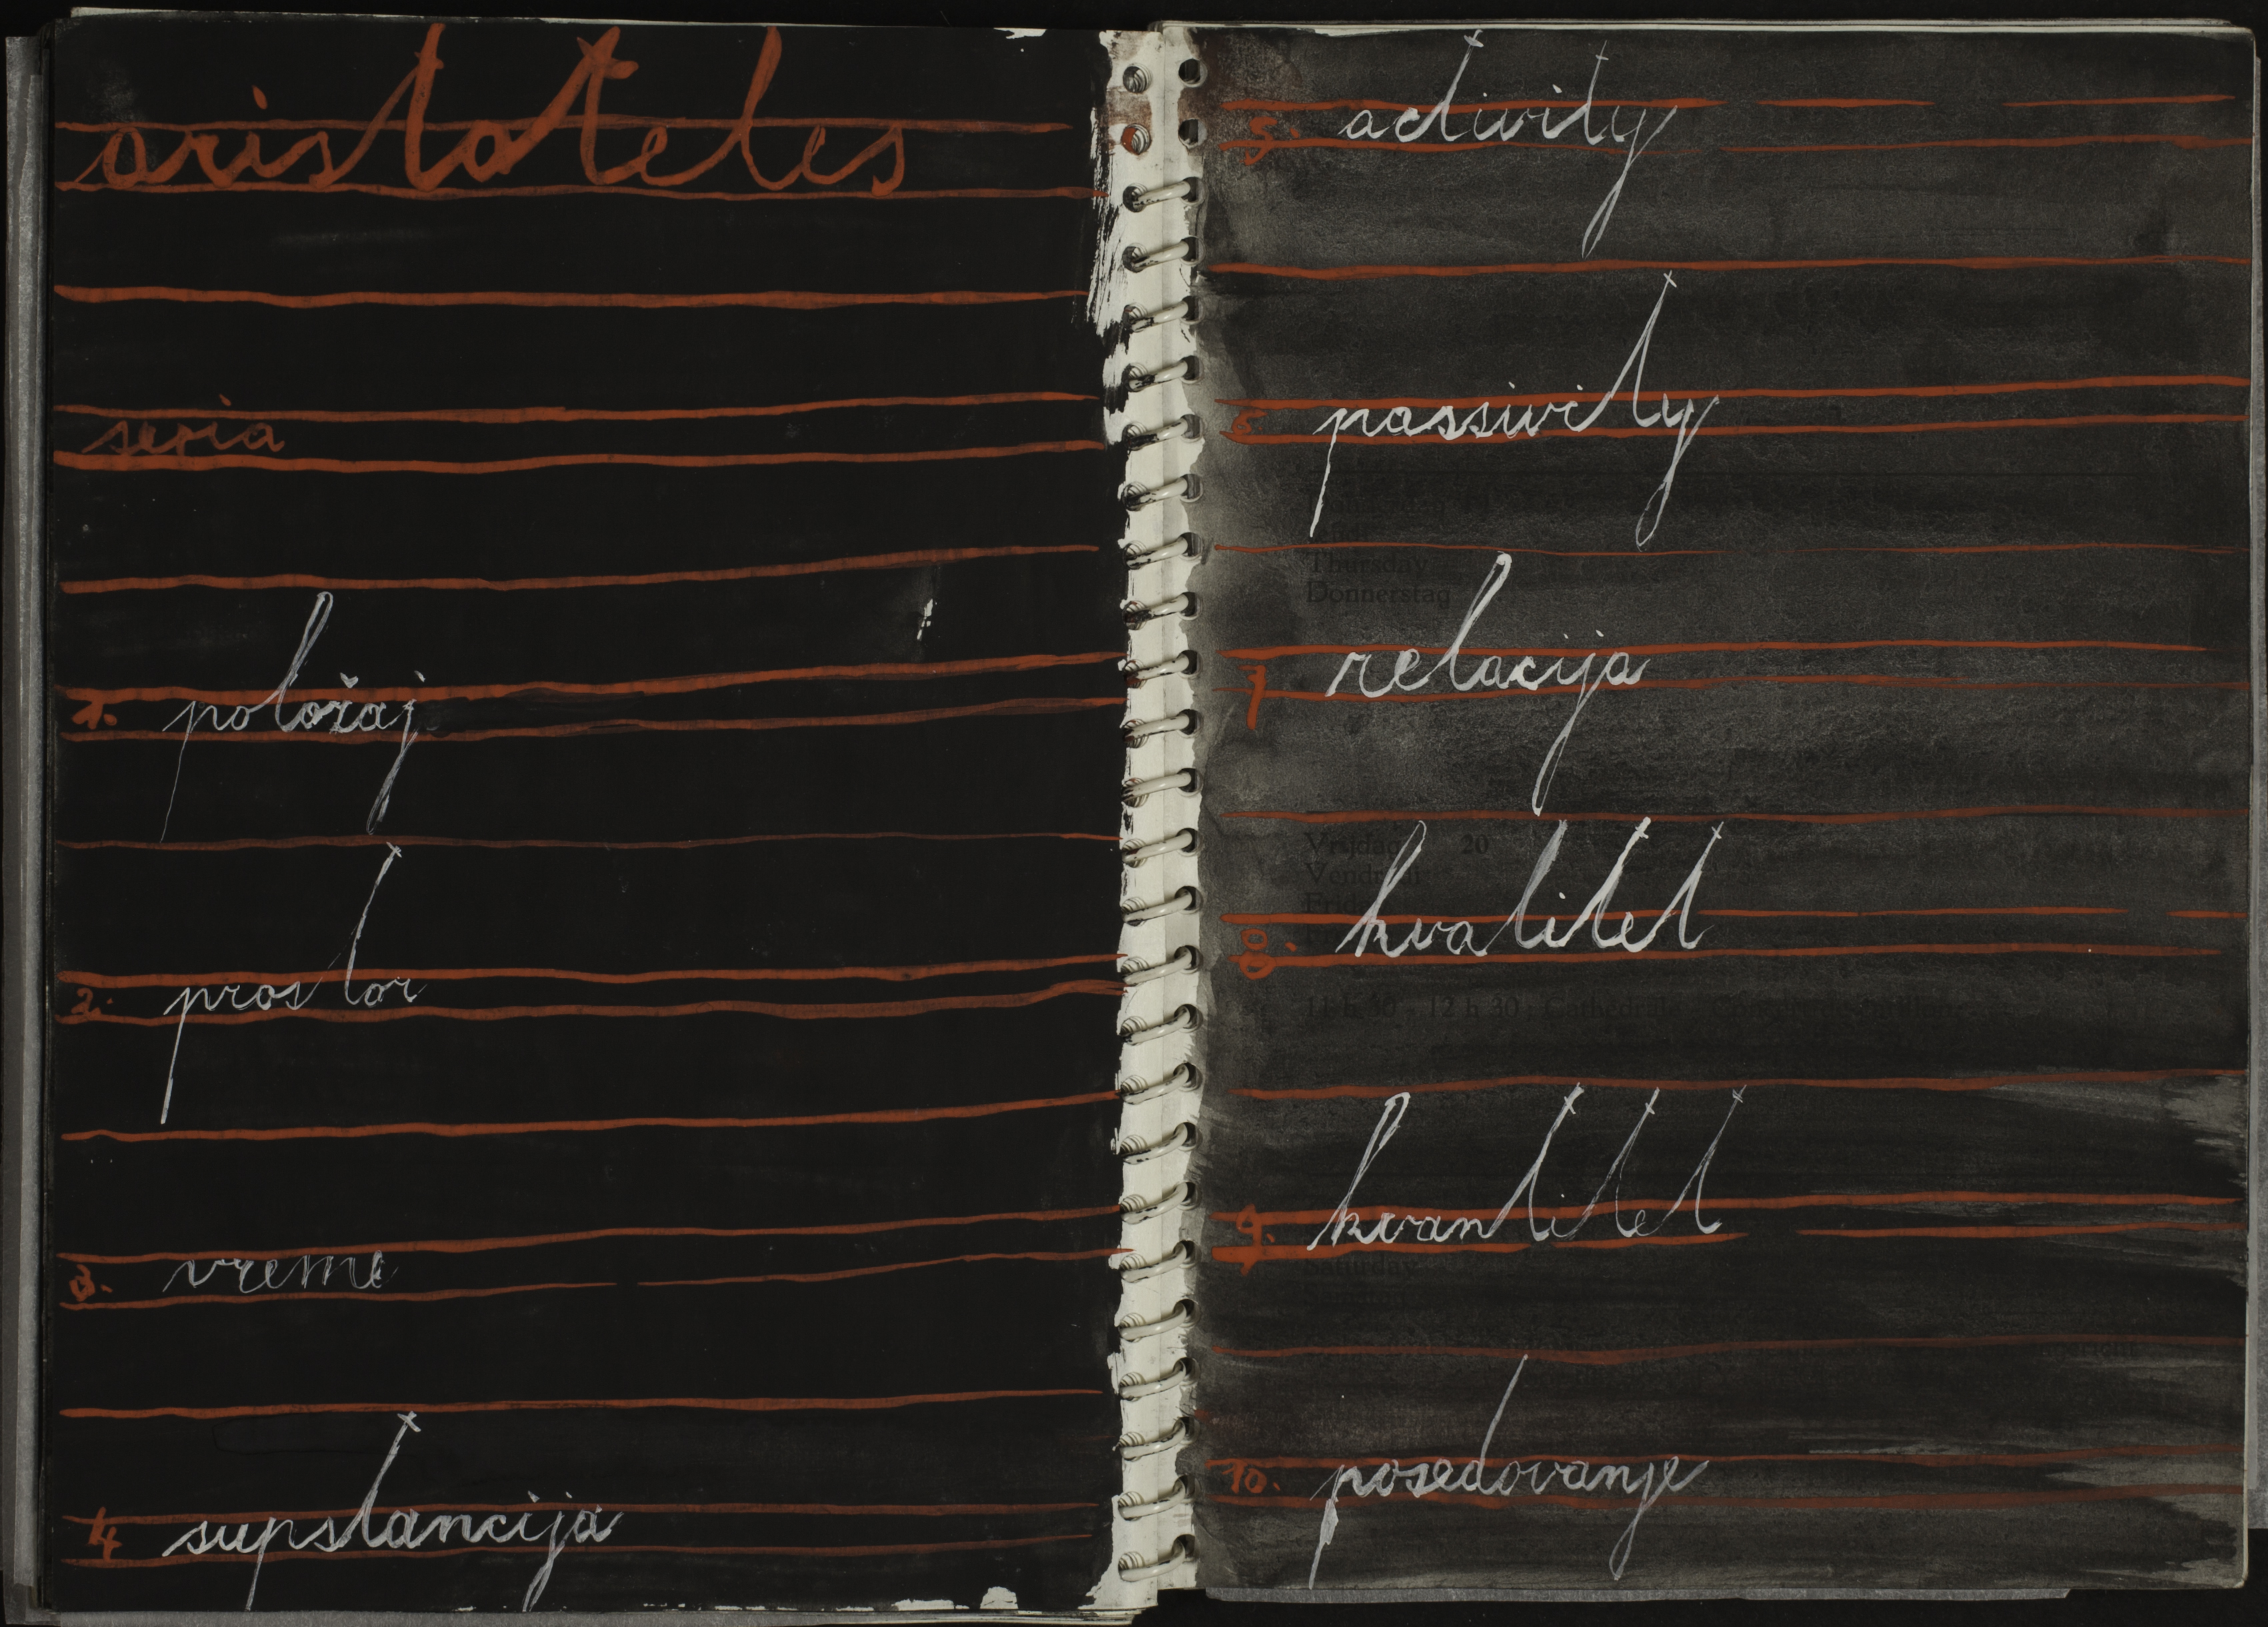 aristoteles
seria
1. položaj
2. prostor
3. vreme
4 supstancija
5. activity
6 passivity
Thursday
Donnerstag
7 relacija
Vrijdag 20
Vendredi
Friday
8. kvalitet
11 h 30 - 12 h 30 : Cathédrale
9. kvantitet
Saturday
Samstag
10. posedovanje